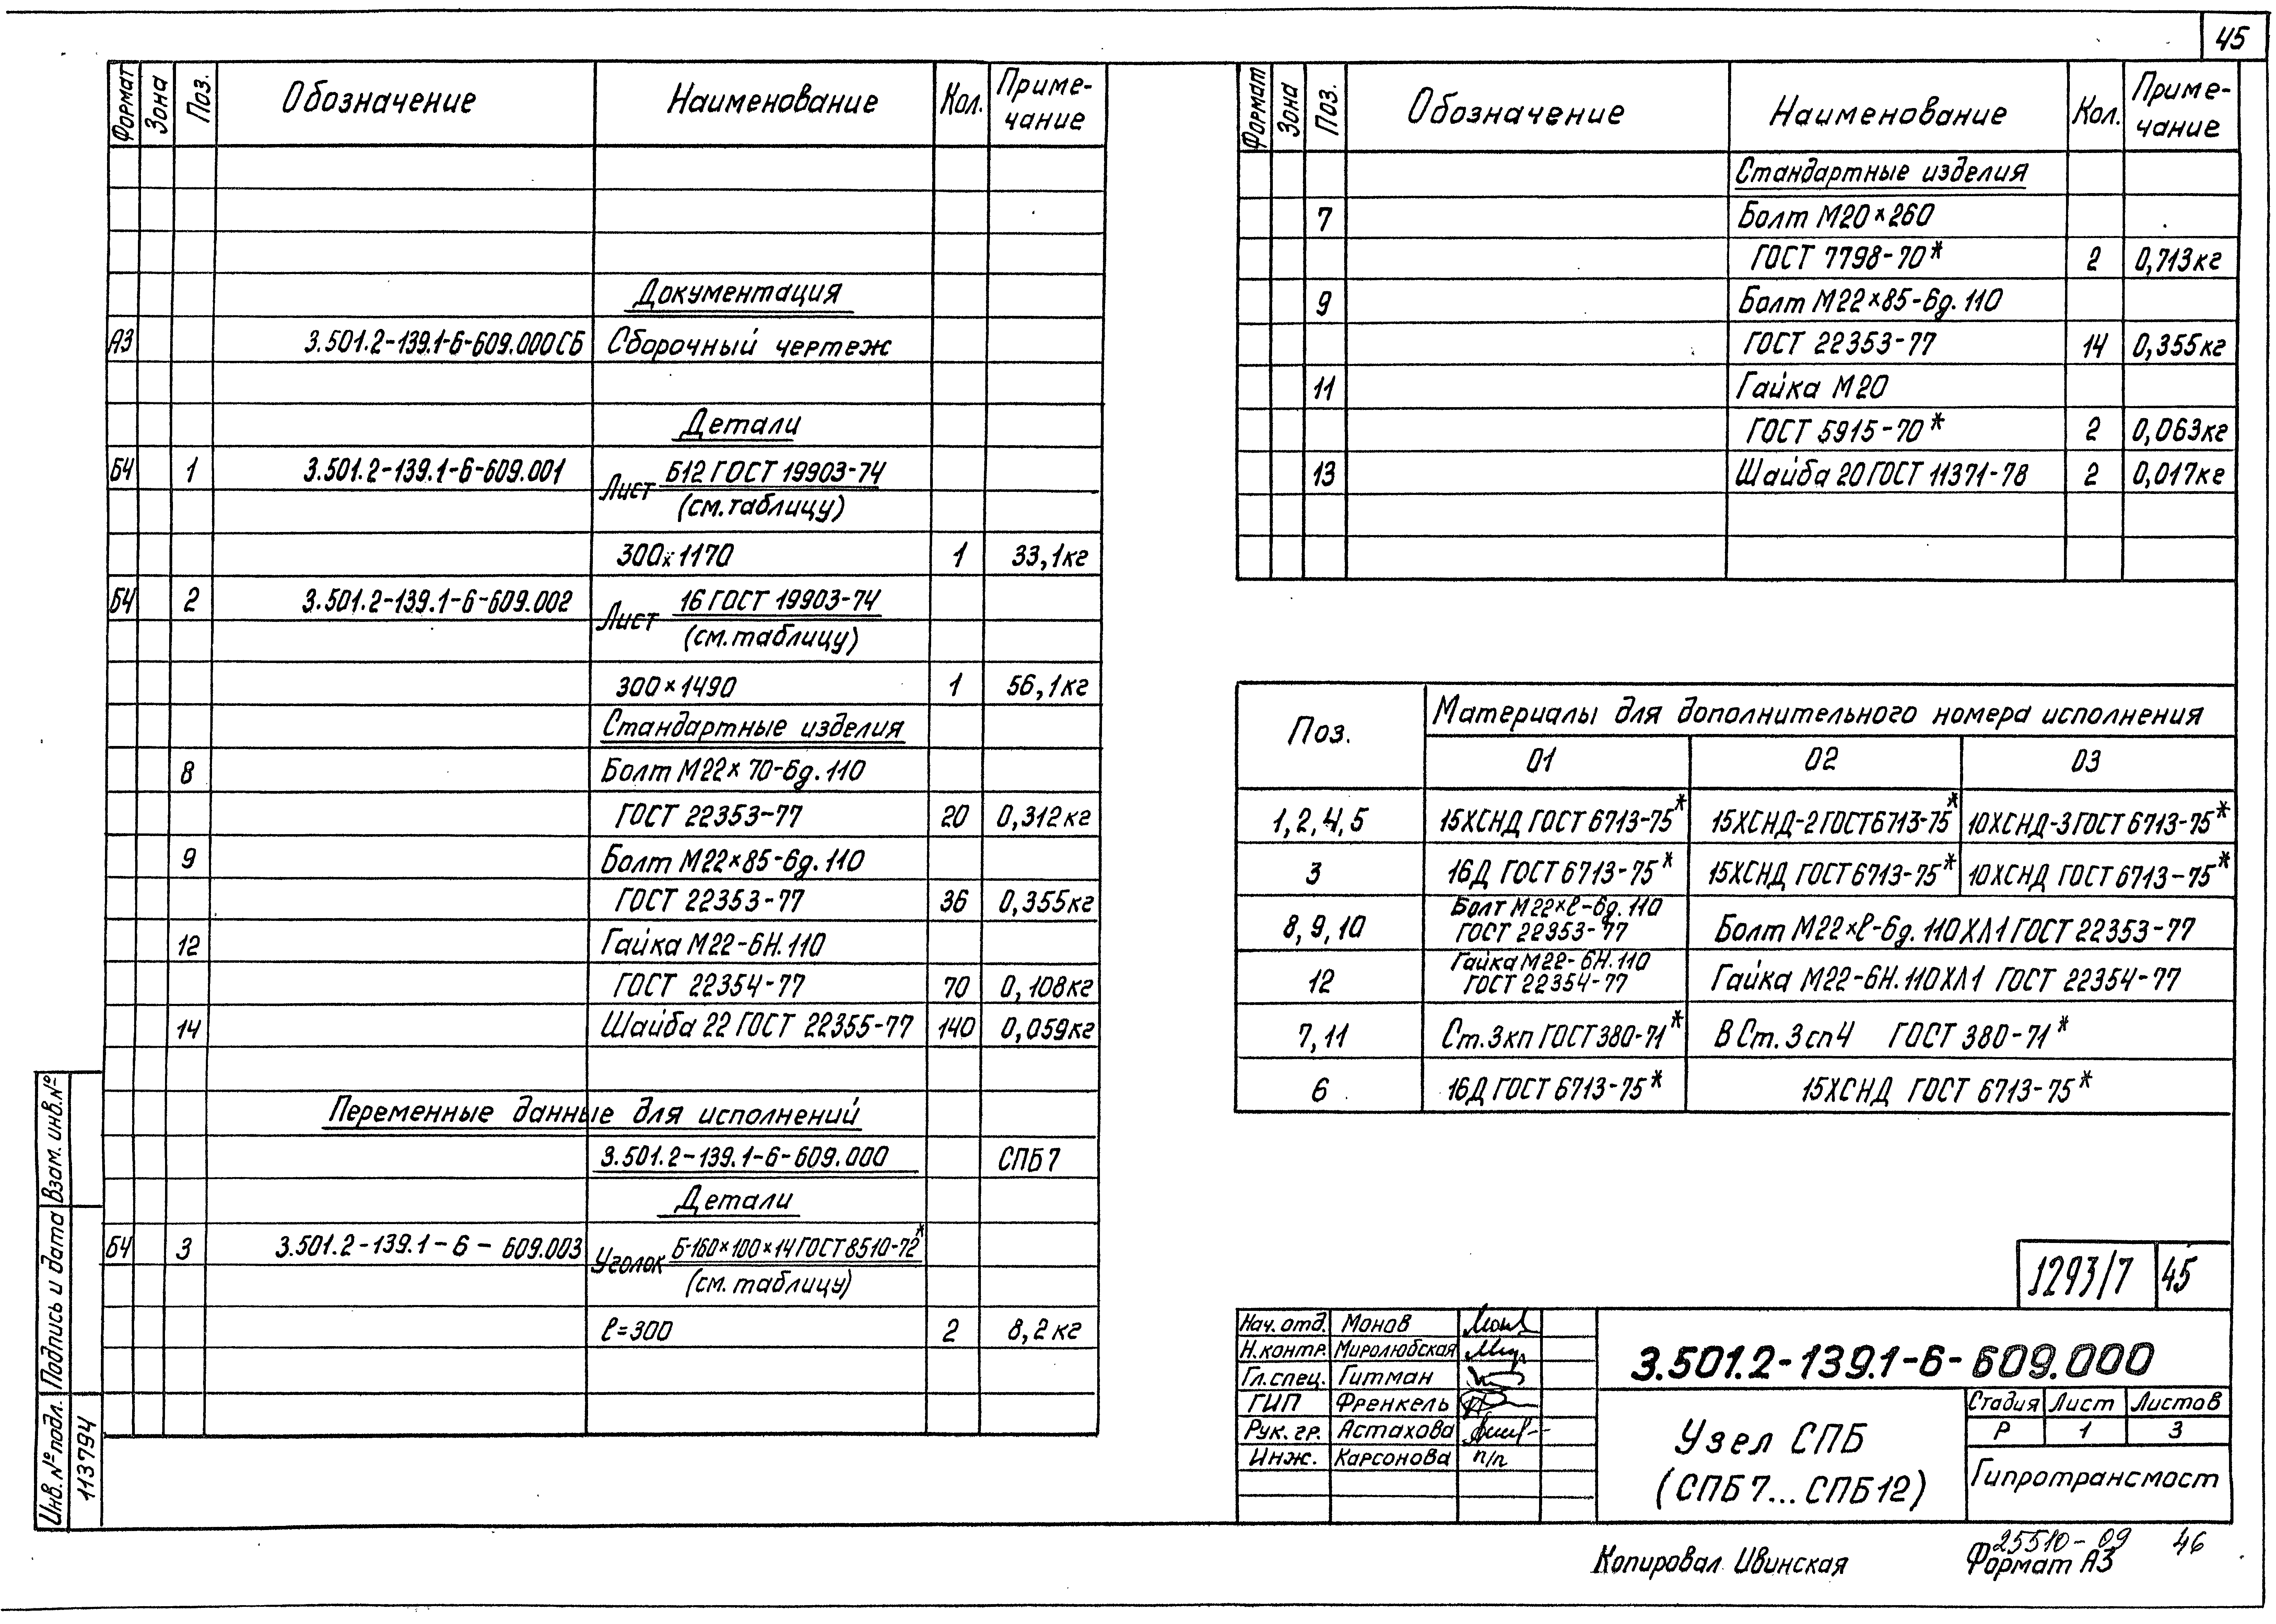 45
Формат Зона Поз. Обозначение Наименование Кол. Приме-чание
Документация
А3 3.501.2-139.1-6-609.000СБ Сборочный чертеж
Детали
БЧ 1 3.501.2-139.1-6-609.001 Лист Б12 ГОСТ 19903-74
(см. таблицу)
300×1170 1 33,1кг
БЧ 2 3.501.2-139.1-6-609.002 Лист 16 ГОСТ 19903-74
(см. таблицу)
300×1490 1 56,1кг
Стандартные изделия
8 Болт М22×70-6g.110
ГОСТ 22353-77 20 0,312кг
9 Болт М22×85-6g.110
ГОСТ 22353-77 36 0,355кг
12 Гайка М22-6Н.110
ГОСТ 22354-77 70 0,108кг
14 Шайба 22 ГОСТ 22355-77 140 0,059кг
Переменные данные для исполнений
3.501.2-139.1-6-609.000 СПБ7
Детали
БЧ 3 3.501.2-139.1-6-609.003 Уголок Б-160×100×14 ГОСТ 8510-72*
(см. таблицу)
ℓ=300 2 8,2кг
Формат Зона Поз. Обозначение Наименование Кол. Приме-чание
Стандартные изделия
7 Болт М20×260
ГОСТ 7798-70* 2 0,713кг
9 Болт М22×85-6g.110
ГОСТ 22353-77 14 0,355кг
11 Гайка М20
ГОСТ 5915-70* 2 0,063кг
13 Шайба 20 ГОСТ 11371-78 2 0,017кг
Поз. Материалы для дополнительного номера исполнения
01 02 03
1, 2, 4, 5 15ХСНД ГОСТ 6713-75* 15ХСНД-2 ГОСТ 6713-75* 10ХСНД-3 ГОСТ 6713-75*
3 16Д ГОСТ 6713-75* 15ХСНД ГОСТ 6713-75* 10ХСНД ГОСТ 6713-75*
8, 9, 10 Болт М22×ℓ-6g.110 ГОСТ 22353-77 Болт М22×ℓ-6g.110ХЛ1 ГОСТ 22353-77
12 Гайка М22-6Н.110 ГОСТ 22354-77 Гайка М22-6Н.110ХЛ1 ГОСТ 22354-77
7, 11 Ст.3кп ГОСТ 380-71* ВСт.3сп4 ГОСТ 380-71*
6 16Д ГОСТ 6713-75* 15ХСНД ГОСТ 6713-75*
1293/7 45
Нач. отд. Монов
Н.контр. Миролюбская
Гл.спец. Гитман
ГИП Френкель
Рук. гр. Астахова
Инж. Карсонова п/п
3.501.2-139.1-6-609.000
Узел СПБ
(СПБ7...СПБ12)
Стадия Лист Листов
Р 1 3
Гипротрансмост
Инв.№ подл. Подпись и дата Взам. инв.№
113794
25510-09 46
Копировал Ивинская Формат А3